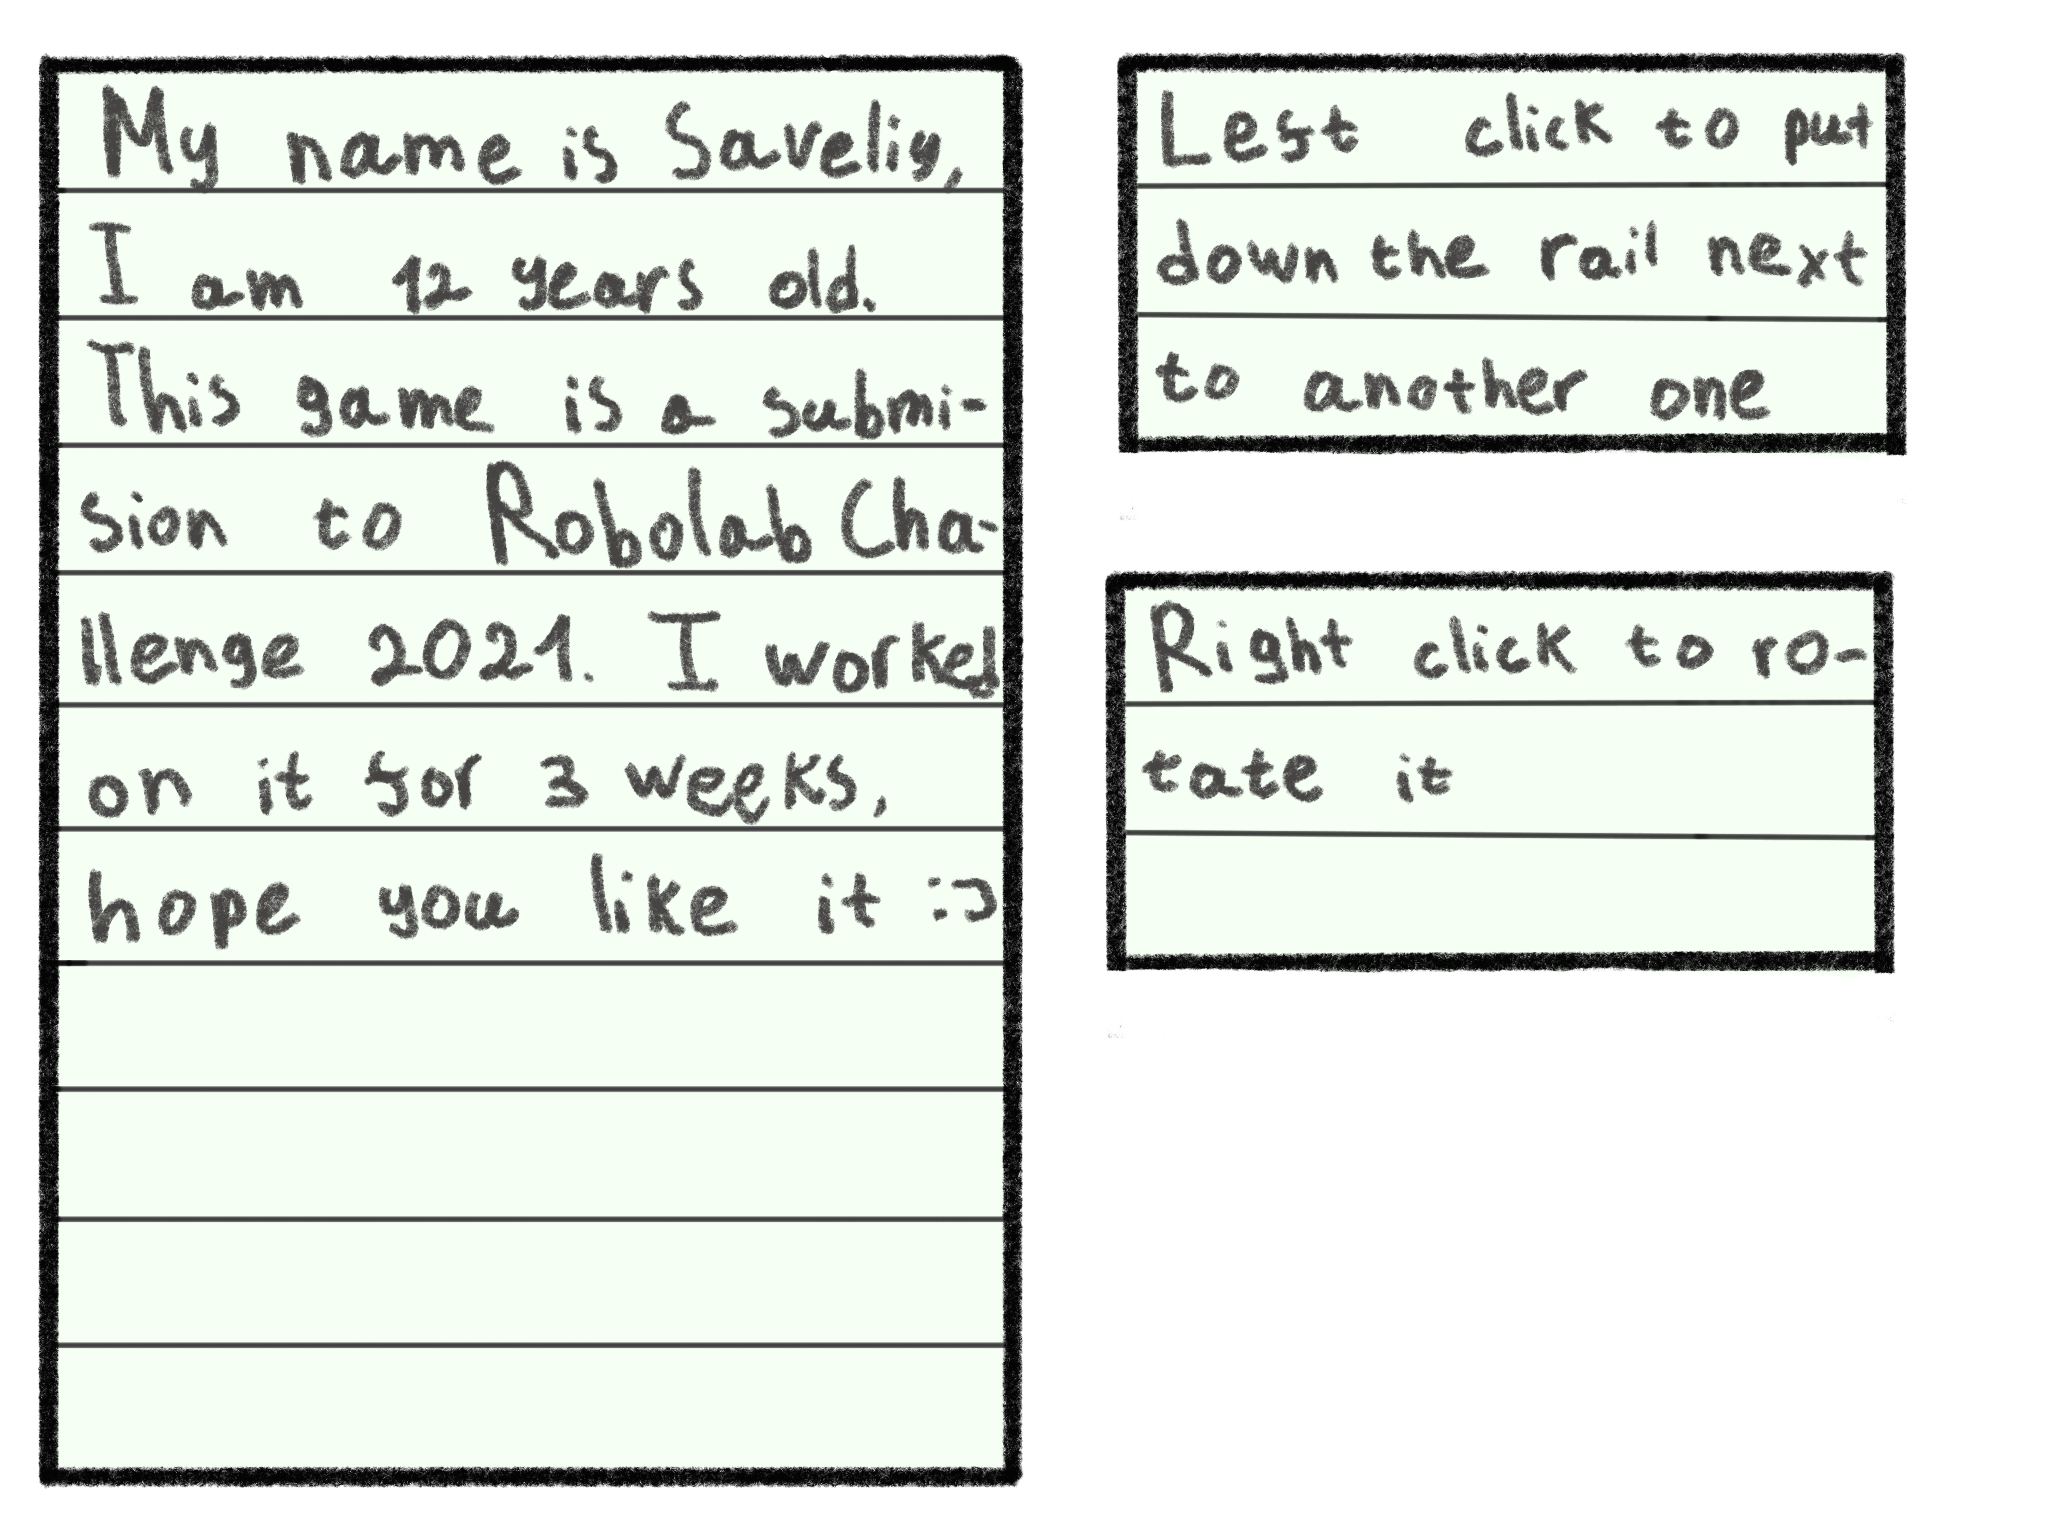 My name is Saveliy,
I am 12 years old.
This game is a submi-
sion to Robolab Cha-
llenge 2021. I worked
on it for 3 weeks,
hope you like it :)
Left click to put
down the rail next
to another one
Right click to ro-
tate it